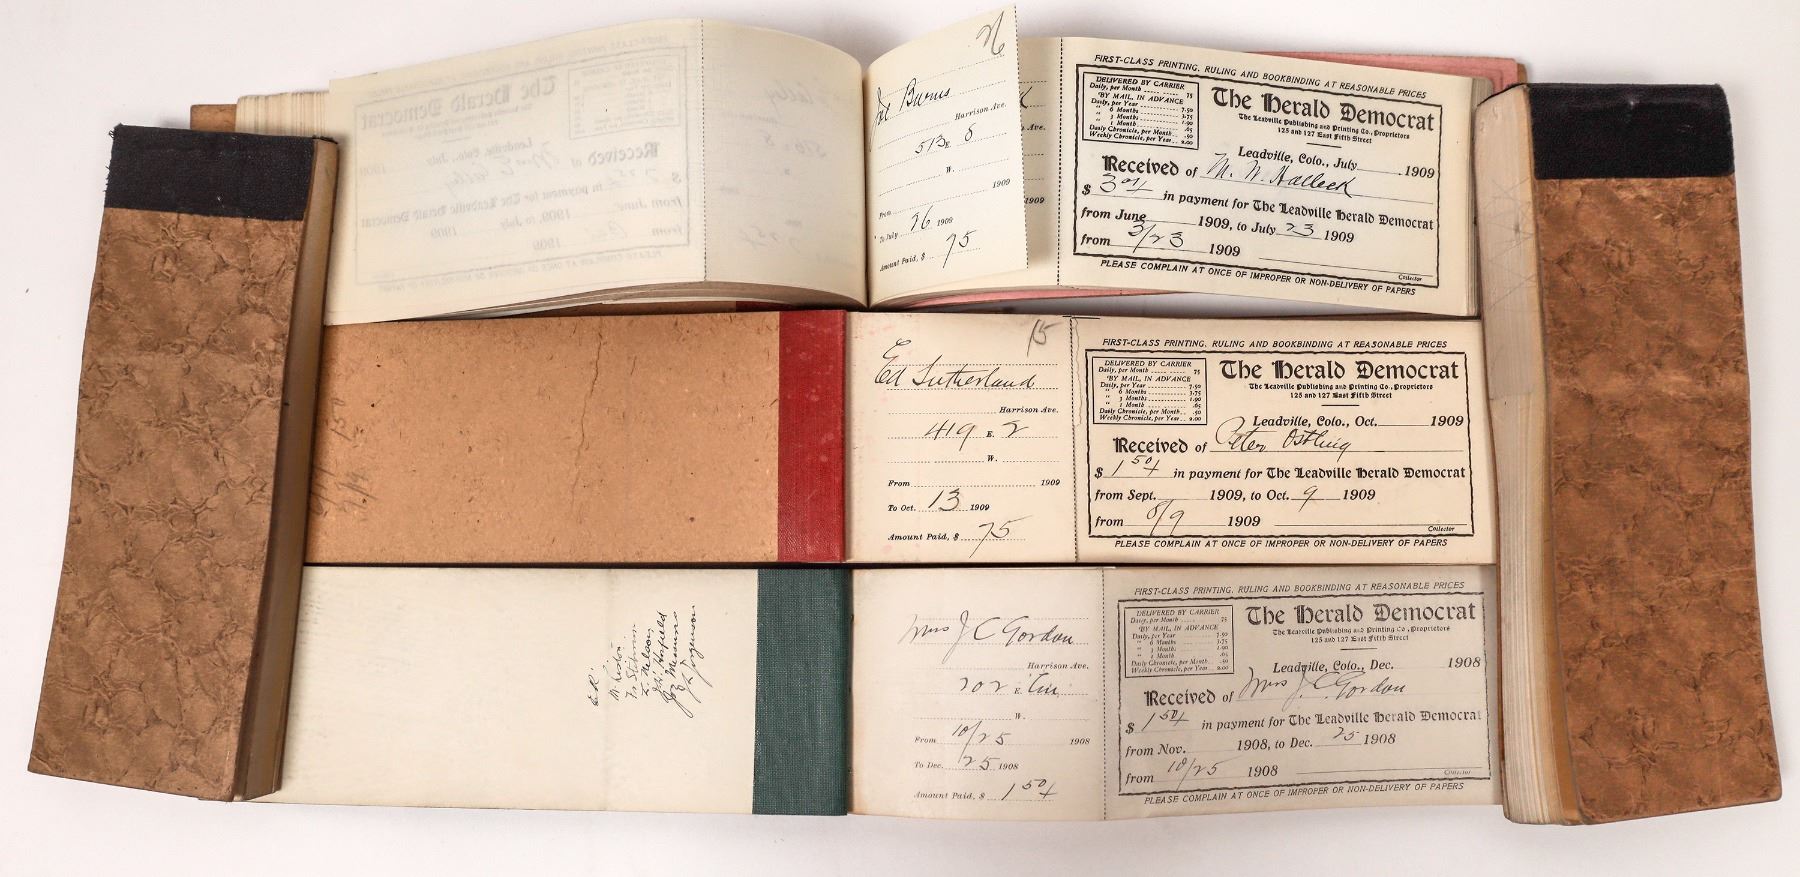 26
Joe Burns
Harrison Ave.
513 E. 8
W.
From 1909
To July 26 1909
Amount Paid, $ 75
Ave.
1909
FIRST-CLASS PRINTING, RULING AND BOOKBINDING AT REASONABLE PRICES
DELIVERED BY CARRIER
Daily, per Month 75
BY MAIL, IN ADVANCE
Daily, per Year 7.50
" 6 Months 3.75
" 3 Months 1.90
" 1 Month .65
Daily Chronicle, per Month .50
Weekly Chronicle, per Year 2.00
The Herald Democrat
The Leadville Publishing and Printing Co., Proprietors
125 and 127 East Fifth Street
Leadville, Colo., July 1909
Received of M. W. Halleck
$ in payment for The Leadville Herald Democrat
from June 1909, to July 23 1909
from 3/23 1909
Collector
PLEASE COMPLAIN AT ONCE OF IMPROPER OR NON-DELIVERY OF PAPERS
15
Ed Sutherland
Harrison Ave.
419 E. 2
W.
From 1909
To Oct. 13 1909
Amount Paid, $ 75
FIRST-CLASS PRINTING, RULING AND BOOKBINDING AT REASONABLE PRICES
DELIVERED BY CARRIER
Daily, per Month 75
BY MAIL, IN ADVANCE
Daily, per Year 7.50
" 6 Months 3.75
" 3 Months 1.90
" 1 Month .65
Daily Chronicle, per Month .50
Weekly Chronicle, per Year 2.00
The Herald Democrat
The Leadville Publishing and Printing Co., Proprietors
125 and 127 East Fifth Street
Leadville, Colo., Oct. 1909
Received of Peter Ostling
$ 1 50 in payment for The Leadville Herald Democrat
from Sept. 1909, to Oct. 9 1909
from 8/9 1909
Collector
PLEASE COMPLAIN AT ONCE OF IMPROPER OR NON-DELIVERY OF PAPERS
J. Nelson
Mrs J C Gordon
Harrison Ave.
202 E.
W.
From 10/25 1908
To Dec. 25 1908
Amount Paid, $ 1 50
FIRST-CLASS PRINTING, RULING AND BOOKBINDING AT REASONABLE PRICES
DELIVERED BY CARRIER
Daily, per Month 75
BY MAIL, IN ADVANCE
Daily, per Year 7.50
" 6 Months 3.75
" 3 Months 1.90
" 1 Month .65
Daily Chronicle, per Month .50
Weekly Chronicle, per Year 2.00
The Herald Democrat
The Leadville Publishing and Printing Co., Proprietors
125 and 127 East Fifth Street
Leadville, Colo., Dec. 1908
Received of Mrs J. C. Gordon
$ 1 50 in payment for The Leadville Herald Democrat
from Nov. 1908, to Dec. 25 1908
from 10/25 1908
Collector
PLEASE COMPLAIN AT ONCE OF IMPROPER OR NON-DELIVERY OF PAPERS